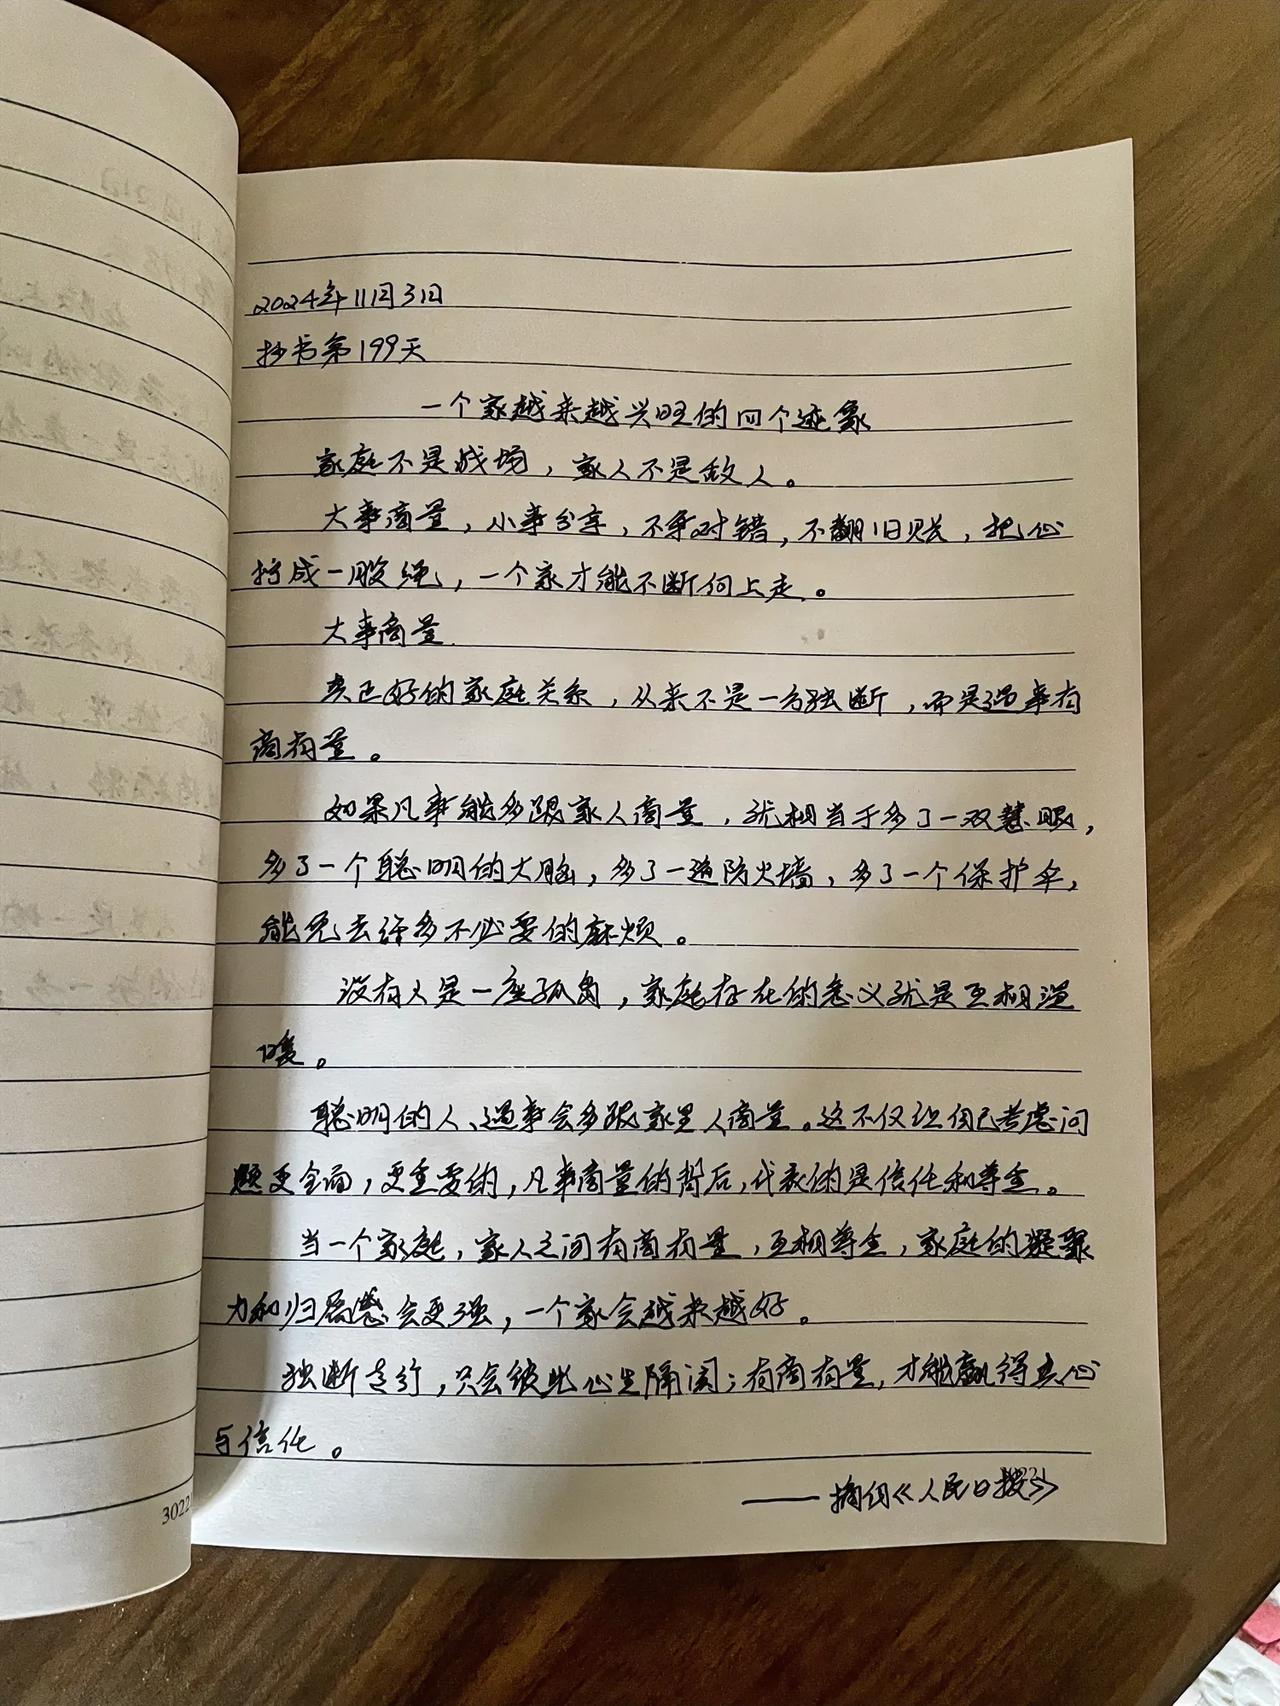 2024年11月3日
抄书第199天
一个家越来越兴旺的四个迹象
家庭不是战场，家人不是敌人。
大事商量，小事分享，不争对错，不翻旧账，把心
拧成一股绳，一个家才能不断向上走。
大事商量
真正好的家庭关系，从来不是一方独断，而是遇事有
商有量。
如果凡事能多跟家人商量，就相当于多了一双慧眼，
多了一个聪明的大脑，多了一道防火墙，多了一个保护伞，
能免去许多不必要的麻烦。
没有人是一座孤岛，家庭存在的意义就是互相温
暖。
聪明的人、遇事会多跟家里人商量。这不仅让自己考虑问
题更全面，更重要的，凡事商量的背后，代表的是信任和尊重。
当一个家庭，家人之间有商有量，互相尊重，家庭的凝聚
力和归属感会更强，一个家会越来越好。
独断专行，只会彼此心生隔阂；有商有量，才能赢得真心
与信任。
——摘自《人民日报》
3022